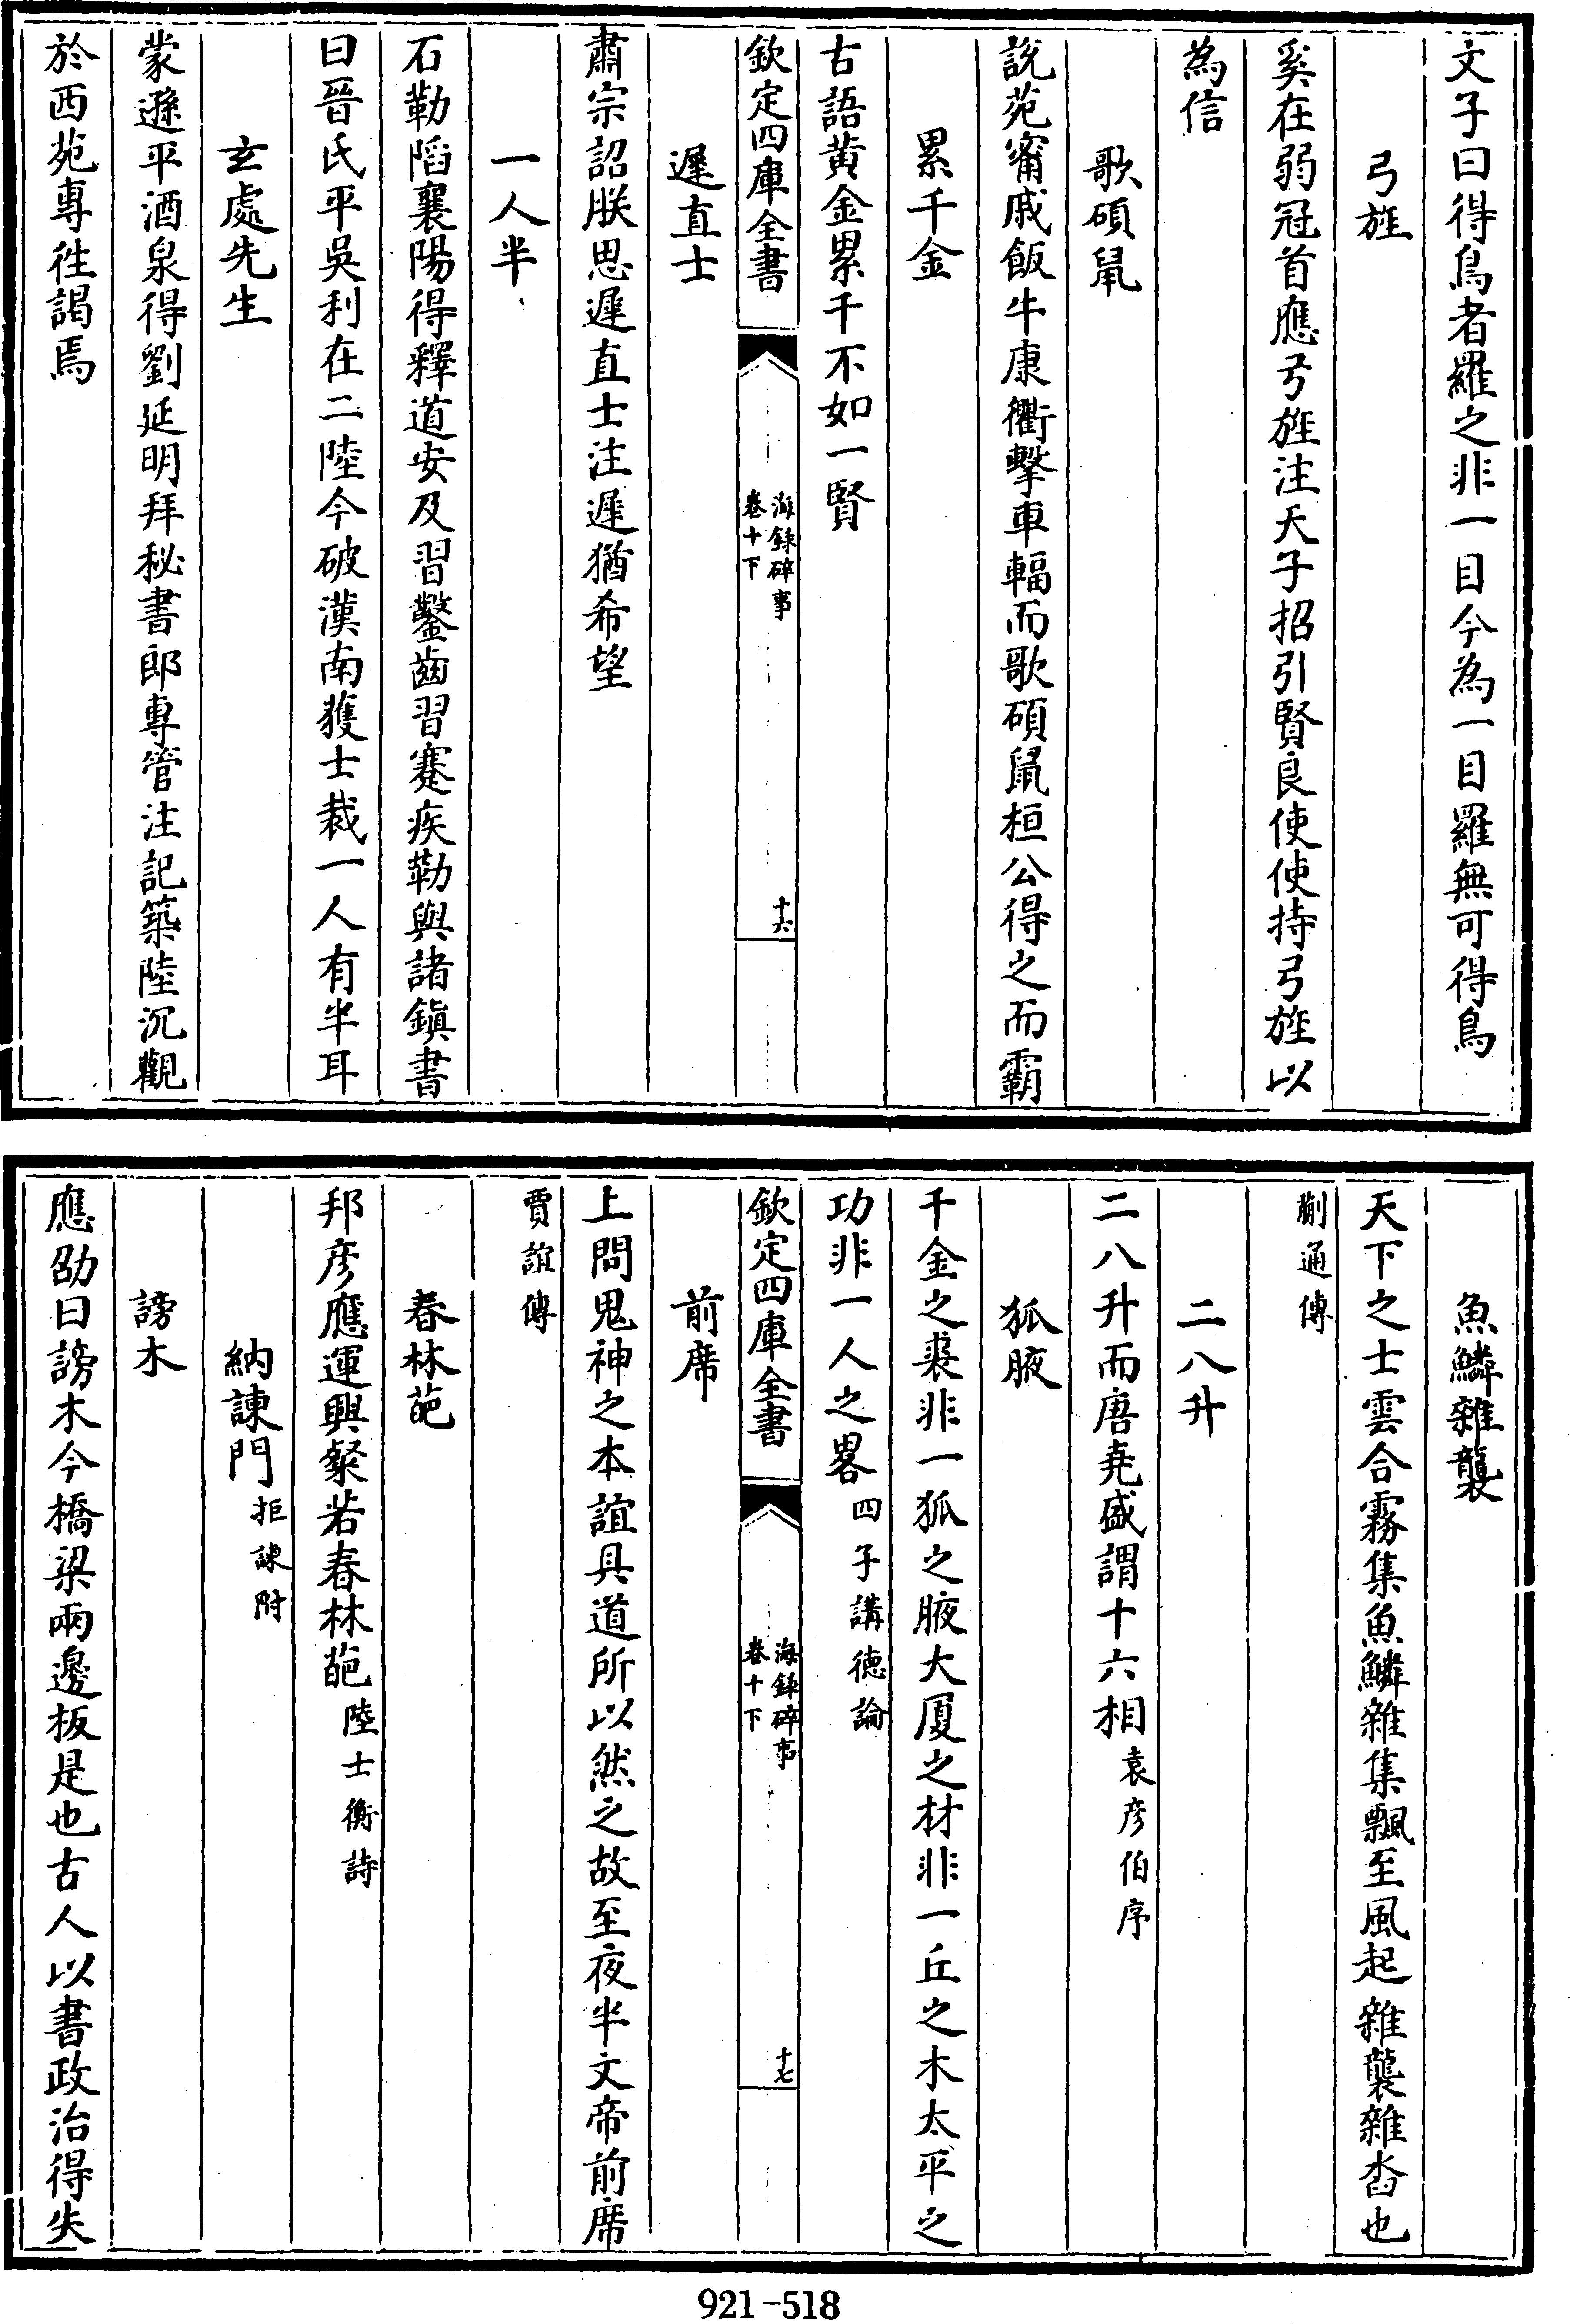 文子曰得鳥者羅之非一目今為一目羅無可得鳥
弓旌
奚在弱冠首應弓旌注天子招引賢良使使持弓旌以
為信
歌碩鼠
說苑甯戚飯牛康衢擊車輻而歌碩鼠桓公得之而霸
累千金
古語黄金累千不如一賢
欽定四庫全書
海錄碎事
卷十下
十六
遲直士
肅宗詔朕思遲直士注遲猶希望
一人半
石勒陷襄陽得釋道安及習鑿齒習蹇疾勒與諸鎮書
曰晉氏平吳利在二陸今破漢南獲士裁一人有半耳
玄處先生
蒙遜平酒泉得劉延明拜秘書郎專管注記築陸沉觀
於西苑專徃謁焉
魚鱗雜襲
天下之士雲合霧集魚鱗雜集飄至風起雜襲雜沓也
蒯通傳
二八升
二八升而唐堯盛謂十六相袁彦伯序
狐腋
千金之裘非一狐之腋大厦之材非一丘之木太平之
功非一人之畧四子講徳論
欽定四庫全書
海錄碎事
卷十下
十七
前席
上問鬼神之本誼具道所以然之故至夜半文帝前席
賈誼傳
春林葩
邦彦應運興粲若春林葩陸士衡詩
納諫門拒諫附
謗木
應劭曰謗木今橋梁兩邊板是也古人以書政治得失
921-518